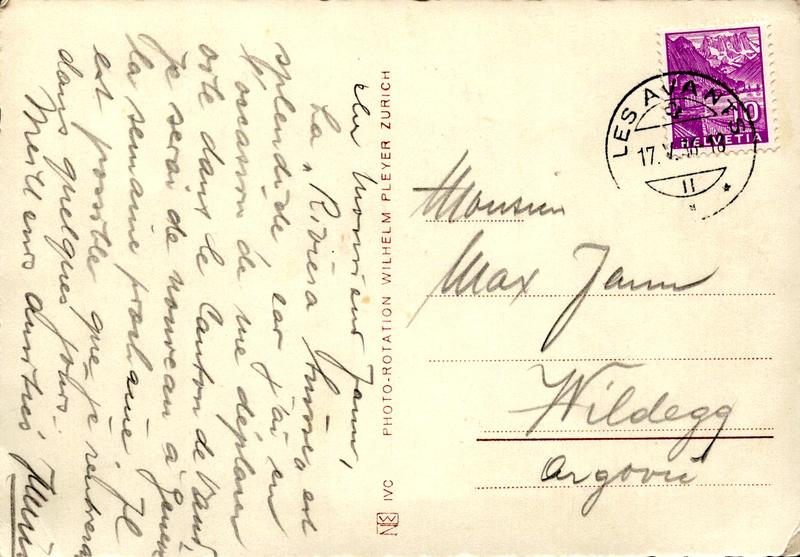 Cher Monsieur Jann,
La „Riviera Suisse" est
splendide, car j'ai eu
l'occasion de me déplacer
dans le Canton de Vaud.
Je serai de nouveau à Genève
la semaine prochaine. Il
est possible que je rentrerai
dans quelques jours.
Meilleures
PHOTO-ROTATION WILHELM PLEYER ZURICH
IVC
LES AVANTS
17.V.36 18
II
10
HELVETIA
Monsieur
Max Jann
Wildegg
Argovie